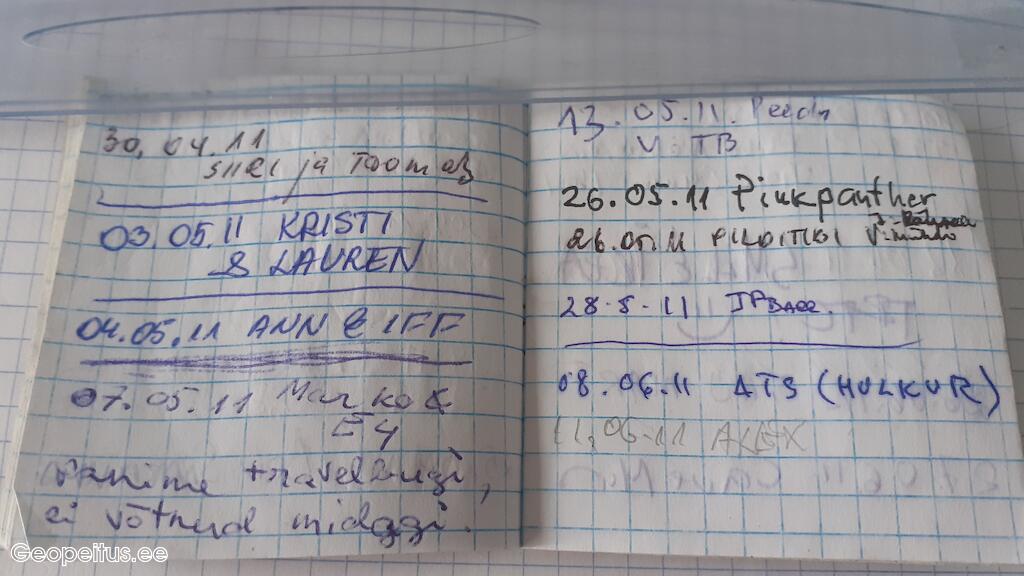 30.04.11
ja Toomas
03.05.11 KRISTI
& LAUREN
04.05.11 ANN & IFF
07.05.11 Marko &
Panime travelbugi,
ei võtnud midagi.
13.05.11.
V TB
26.05.11 Pinkpanther
26.05.11
28.5.11
08.06.11 ATS (HULKUR)
11.06.11 ALEX
Geopeitus.ee